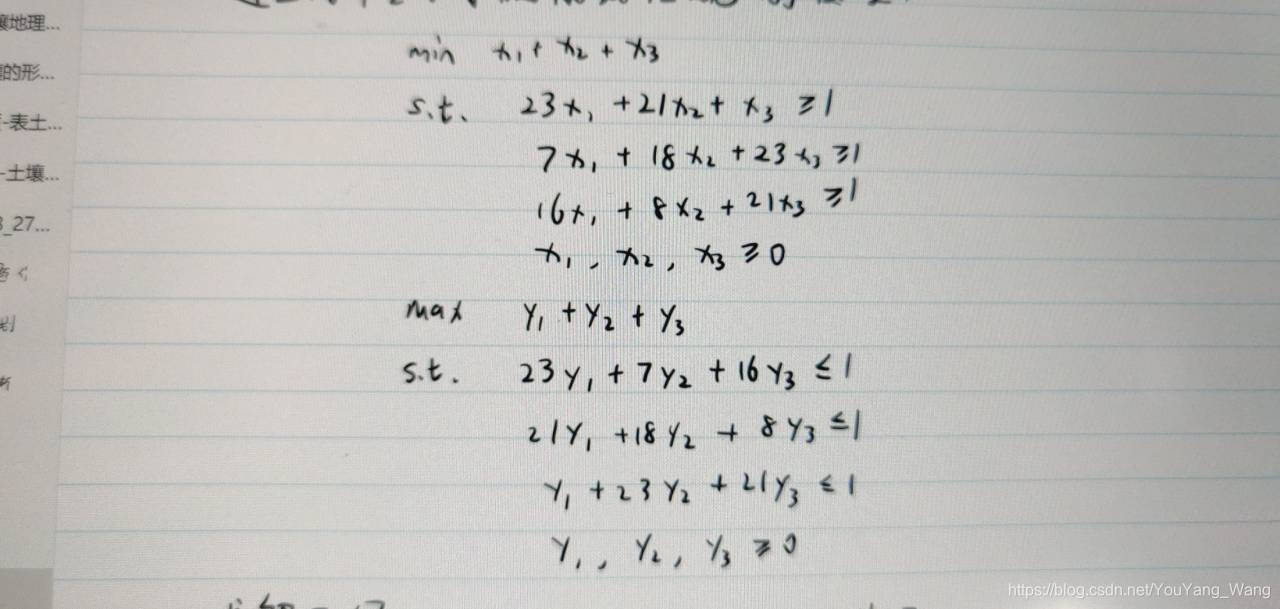 壤地理...
的形...
-表土...
-土壤...
_27...
min x₁ + x₂ + x₃
s.t. 23x₁ + 21x₂ + x₃ ≥ 1
7x₁ + 18x₂ + 23x₃ ≥ 1
16x₁ + 8x₂ + 21x₃ ≥ 1
x₁, x₂, x₃ ≥ 0
max y₁ + y₂ + y₃
s.t. 23y₁ + 7y₂ + 16y₃ ≤ 1
21y₁ + 18y₂ + 8y₃ ≤ 1
y₁ + 23y₂ + 21y₃ ≤ 1
y₁, y₂, y₃ ≥ 0
https://blog.csdn.net/YouYang_Wang